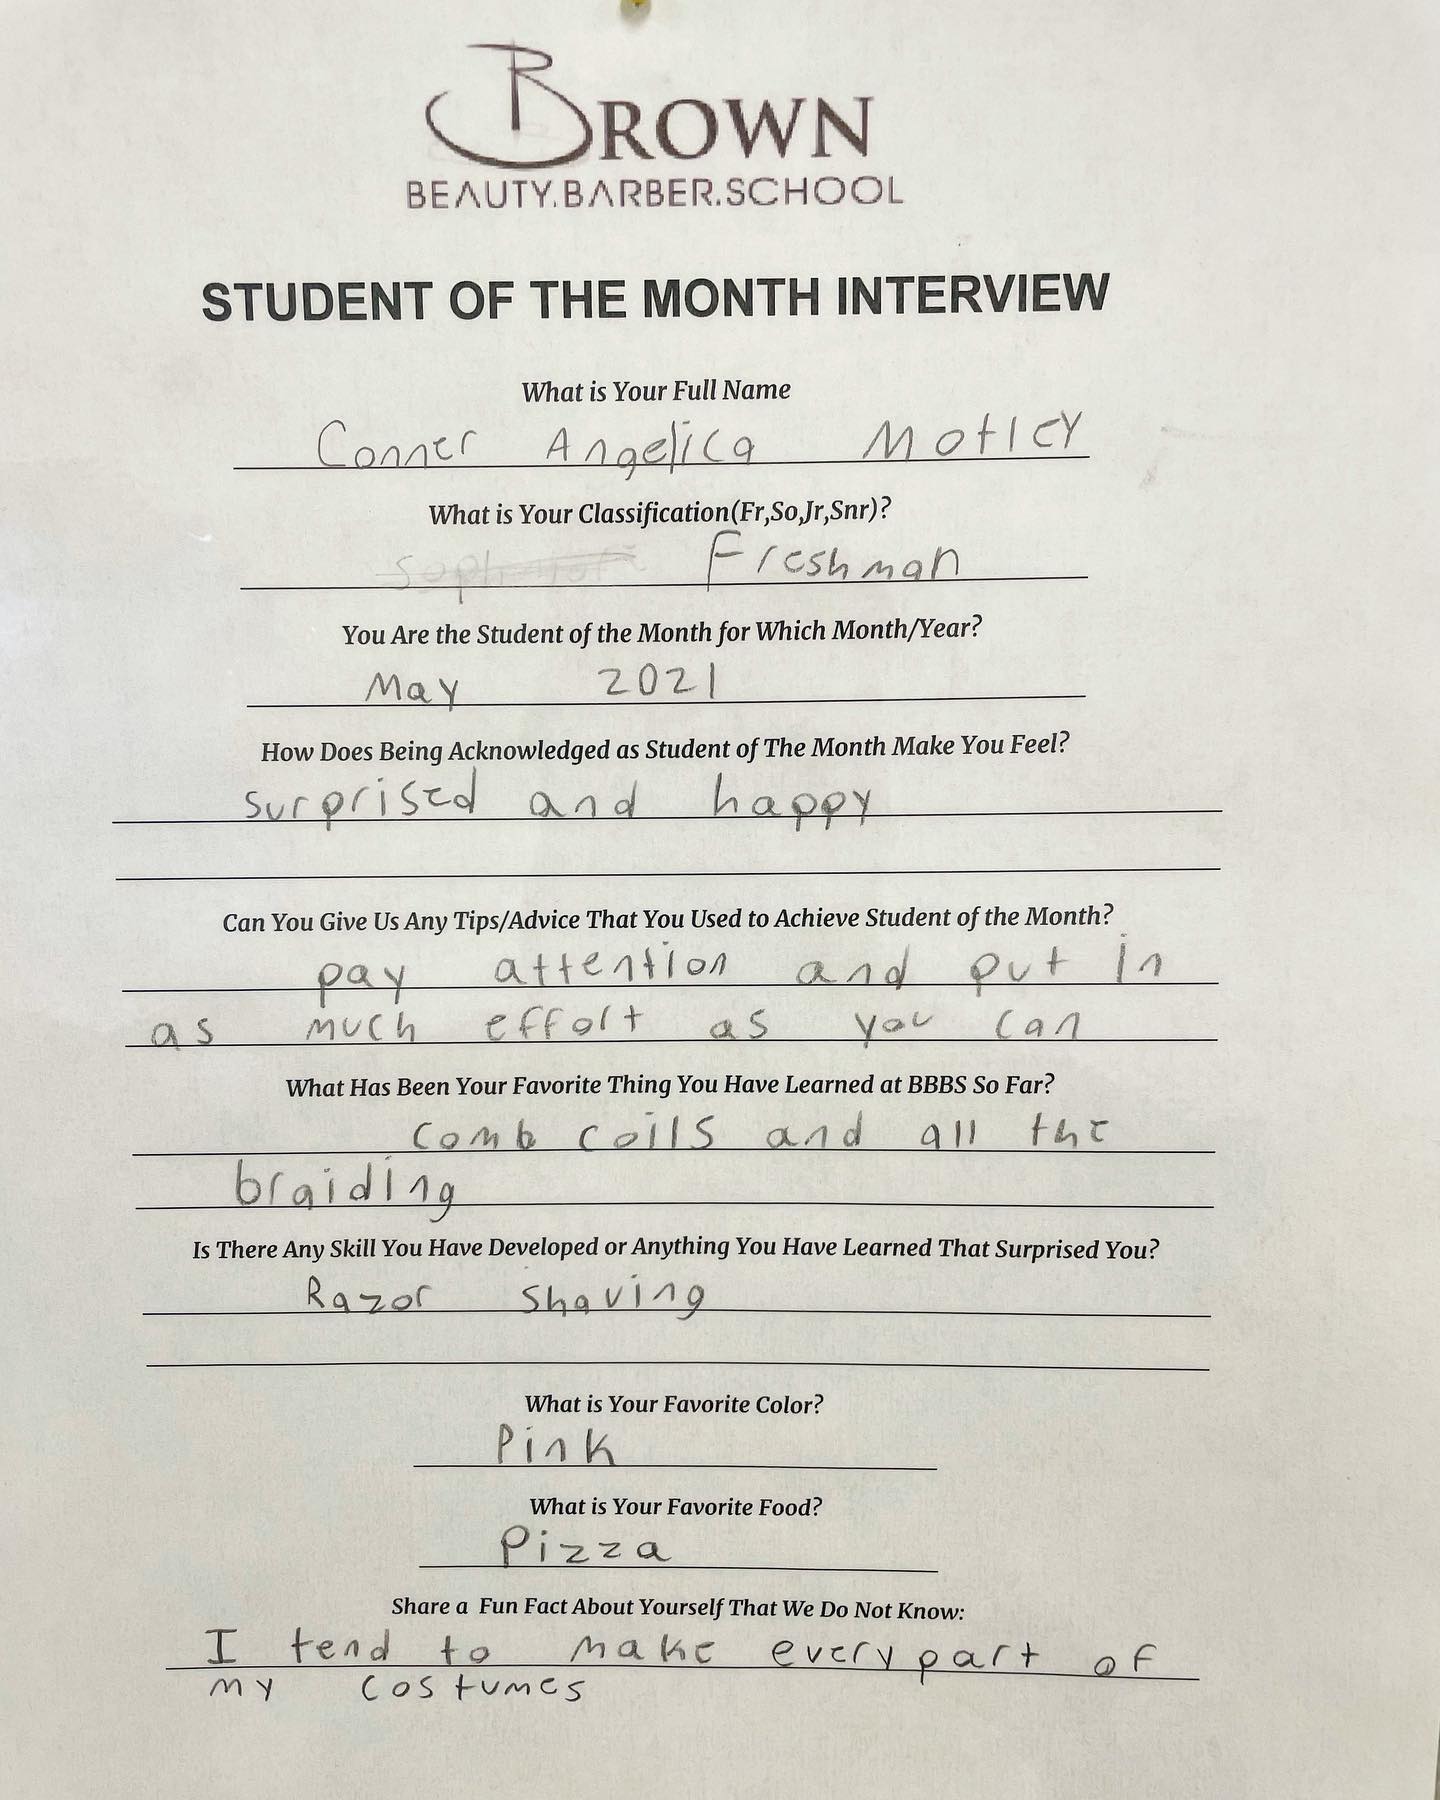 BROWN
BEAUTY.BARBER.SCHOOL
STUDENT OF THE MONTH INTERVIEW
What is Your Full Name
Conner Angelica Motley
What is Your Classification(Fr,So,Jr,Snr)?
Freshman
You Are the Student of the Month for Which Month/Year?
May 2021
How Does Being Acknowledged as Student of The Month Make You Feel?
surprised and happy
Can You Give Us Any Tips/Advice That You Used to Achieve Student of the Month?
pay attention and put in
as much effort as you can
What Has Been Your Favorite Thing You Have Learned at BBBS So Far?
comb coils and all the
braiding
Is There Any Skill You Have Developed or Anything You Have Learned That Surprised You?
Razor shaving
What is Your Favorite Color?
Pink
What is Your Favorite Food?
Pizza
Share a Fun Fact About Yourself That We Do Not Know:
I tend to make every part of
my costumes